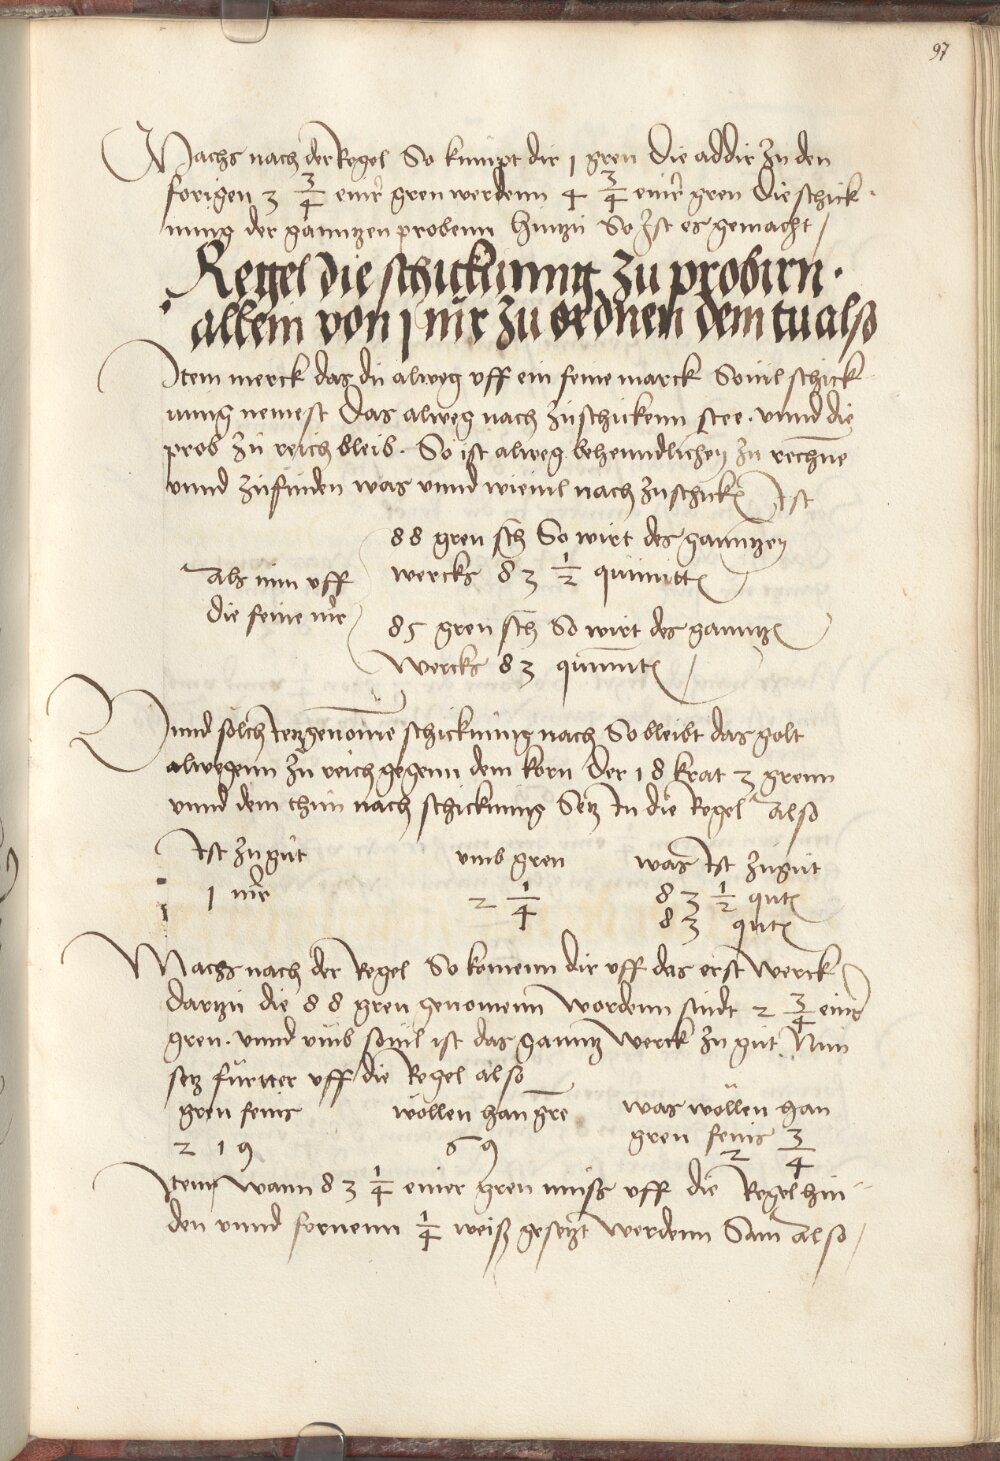 97
Machs nach der Regel So kumpt dir 1 gren Die addir zu den
forigen 3 3/4 einr gren werdenn 4 3/4 einr gren Die schick
nung der ganntzen probenn hintzu So Ist es gemacht
Regel die schicknung zu probirn
allein von 1 mr zu ordnen dem tu also
Item merck das du alweg vff ein feine marck Souil schick
nung nemest Das alweg nach zuschickenn stee. vnnd die
prob zu reich bleib. So ist alweg behenndlichen zu rechne
vnnd zufinden was vnnd wieuil nach zuschick Ist
88 gren sch So wirt des ganntzen
wercks 83 1/2 quinntt
Als nim vff
die feine mr
85 gren sch So wirt des ganntz
Wercks 83 quinnt
Vnnd solch Itzgenome schicknung nach So bleibt das golt
alwegenn zu reich gegenn dem korn Der 18 krat 3 grenn
vnnd dem thun nach schicknung Setz In die Regel Also
Ist zu gut vmb gren was Ist zu gut
1 mr 2 1/4 83 1/2 qut
83 qut
Machs nach der Regel So komenn dir vff das erst Werck
dartzu die 88 gren genomenn Wordenn sindt 2 3/4 einr
gren. vnnd vmb souil ist das ganntz Werck zu gut Nun
setz fürtter vff die Regel also
gren fenis wöllen han gre was wöllen han
gren fenis
219 69 2 3/4
Item Wann 83 1/4 einer gren muss vff die Regel hin
den vnnd fornenn 1/4 weiß gesetzt Werdenn Sam also